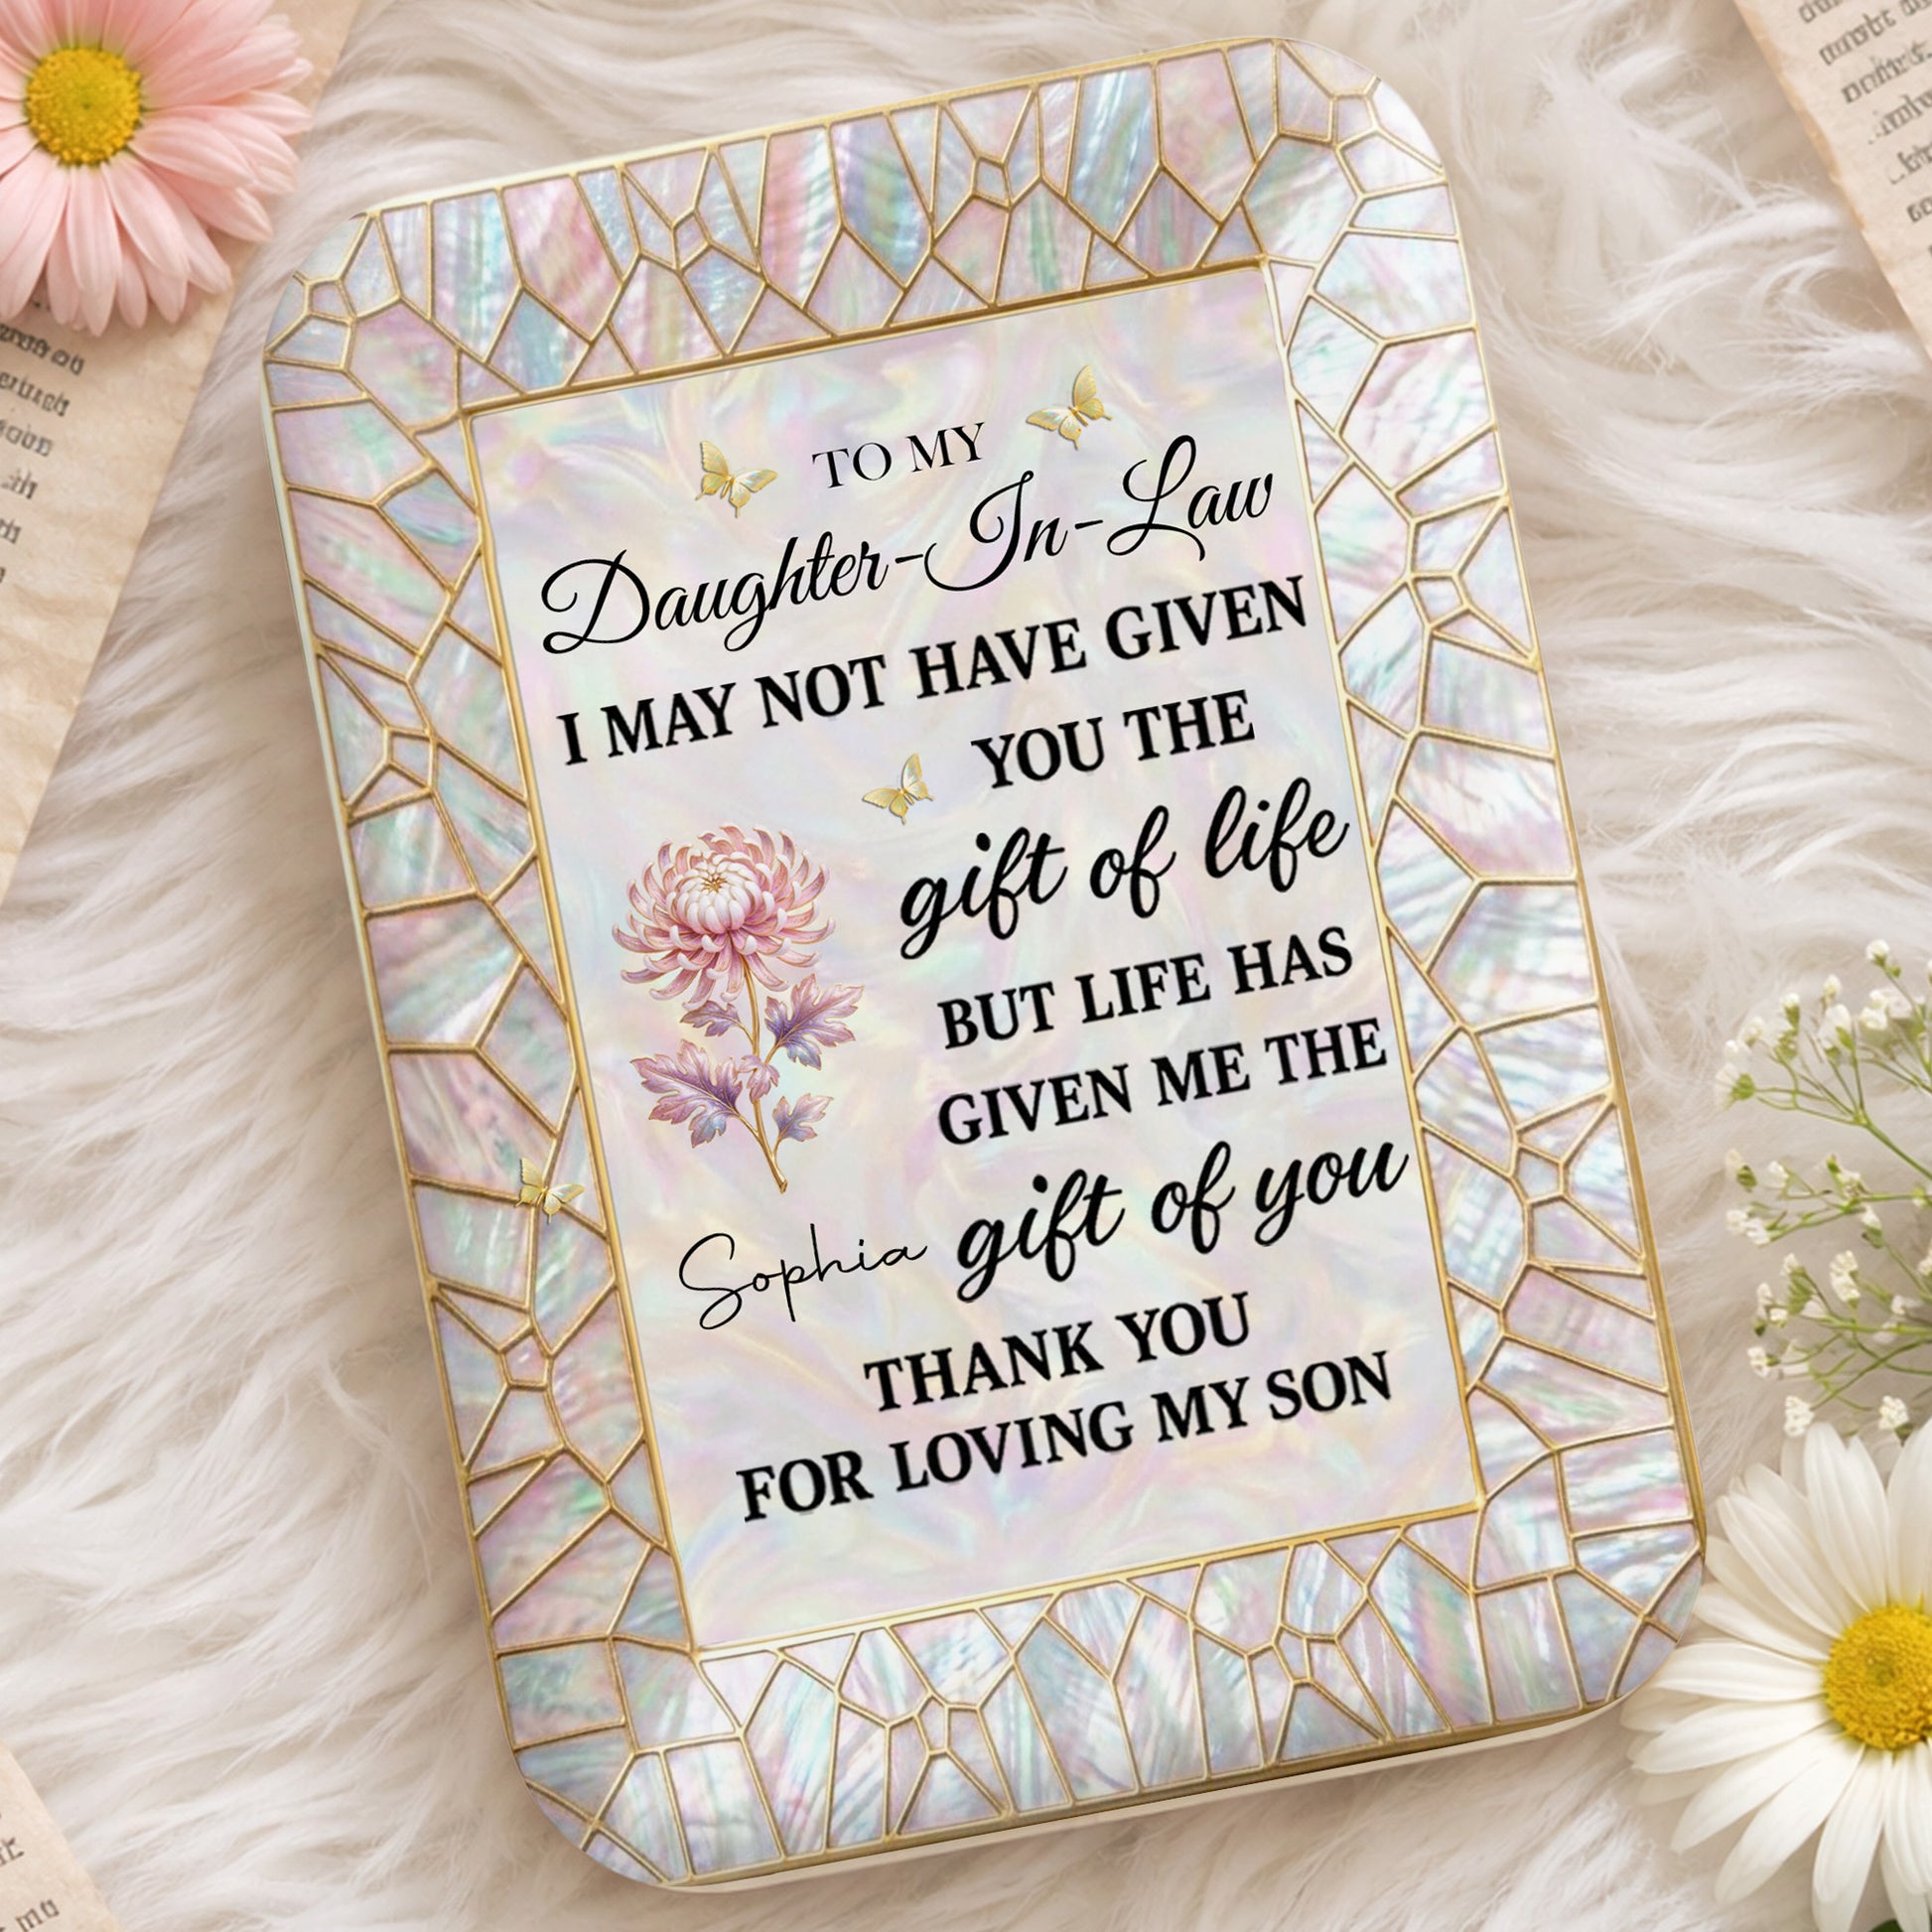 TO MY
Daughter-In-Law
I MAY NOT HAVE GIVEN
YOU THE
gift of life
BUT LIFE HAS
GIVEN ME THE
gift of you
Sophia
THANK YOU
FOR LOVING MY SON